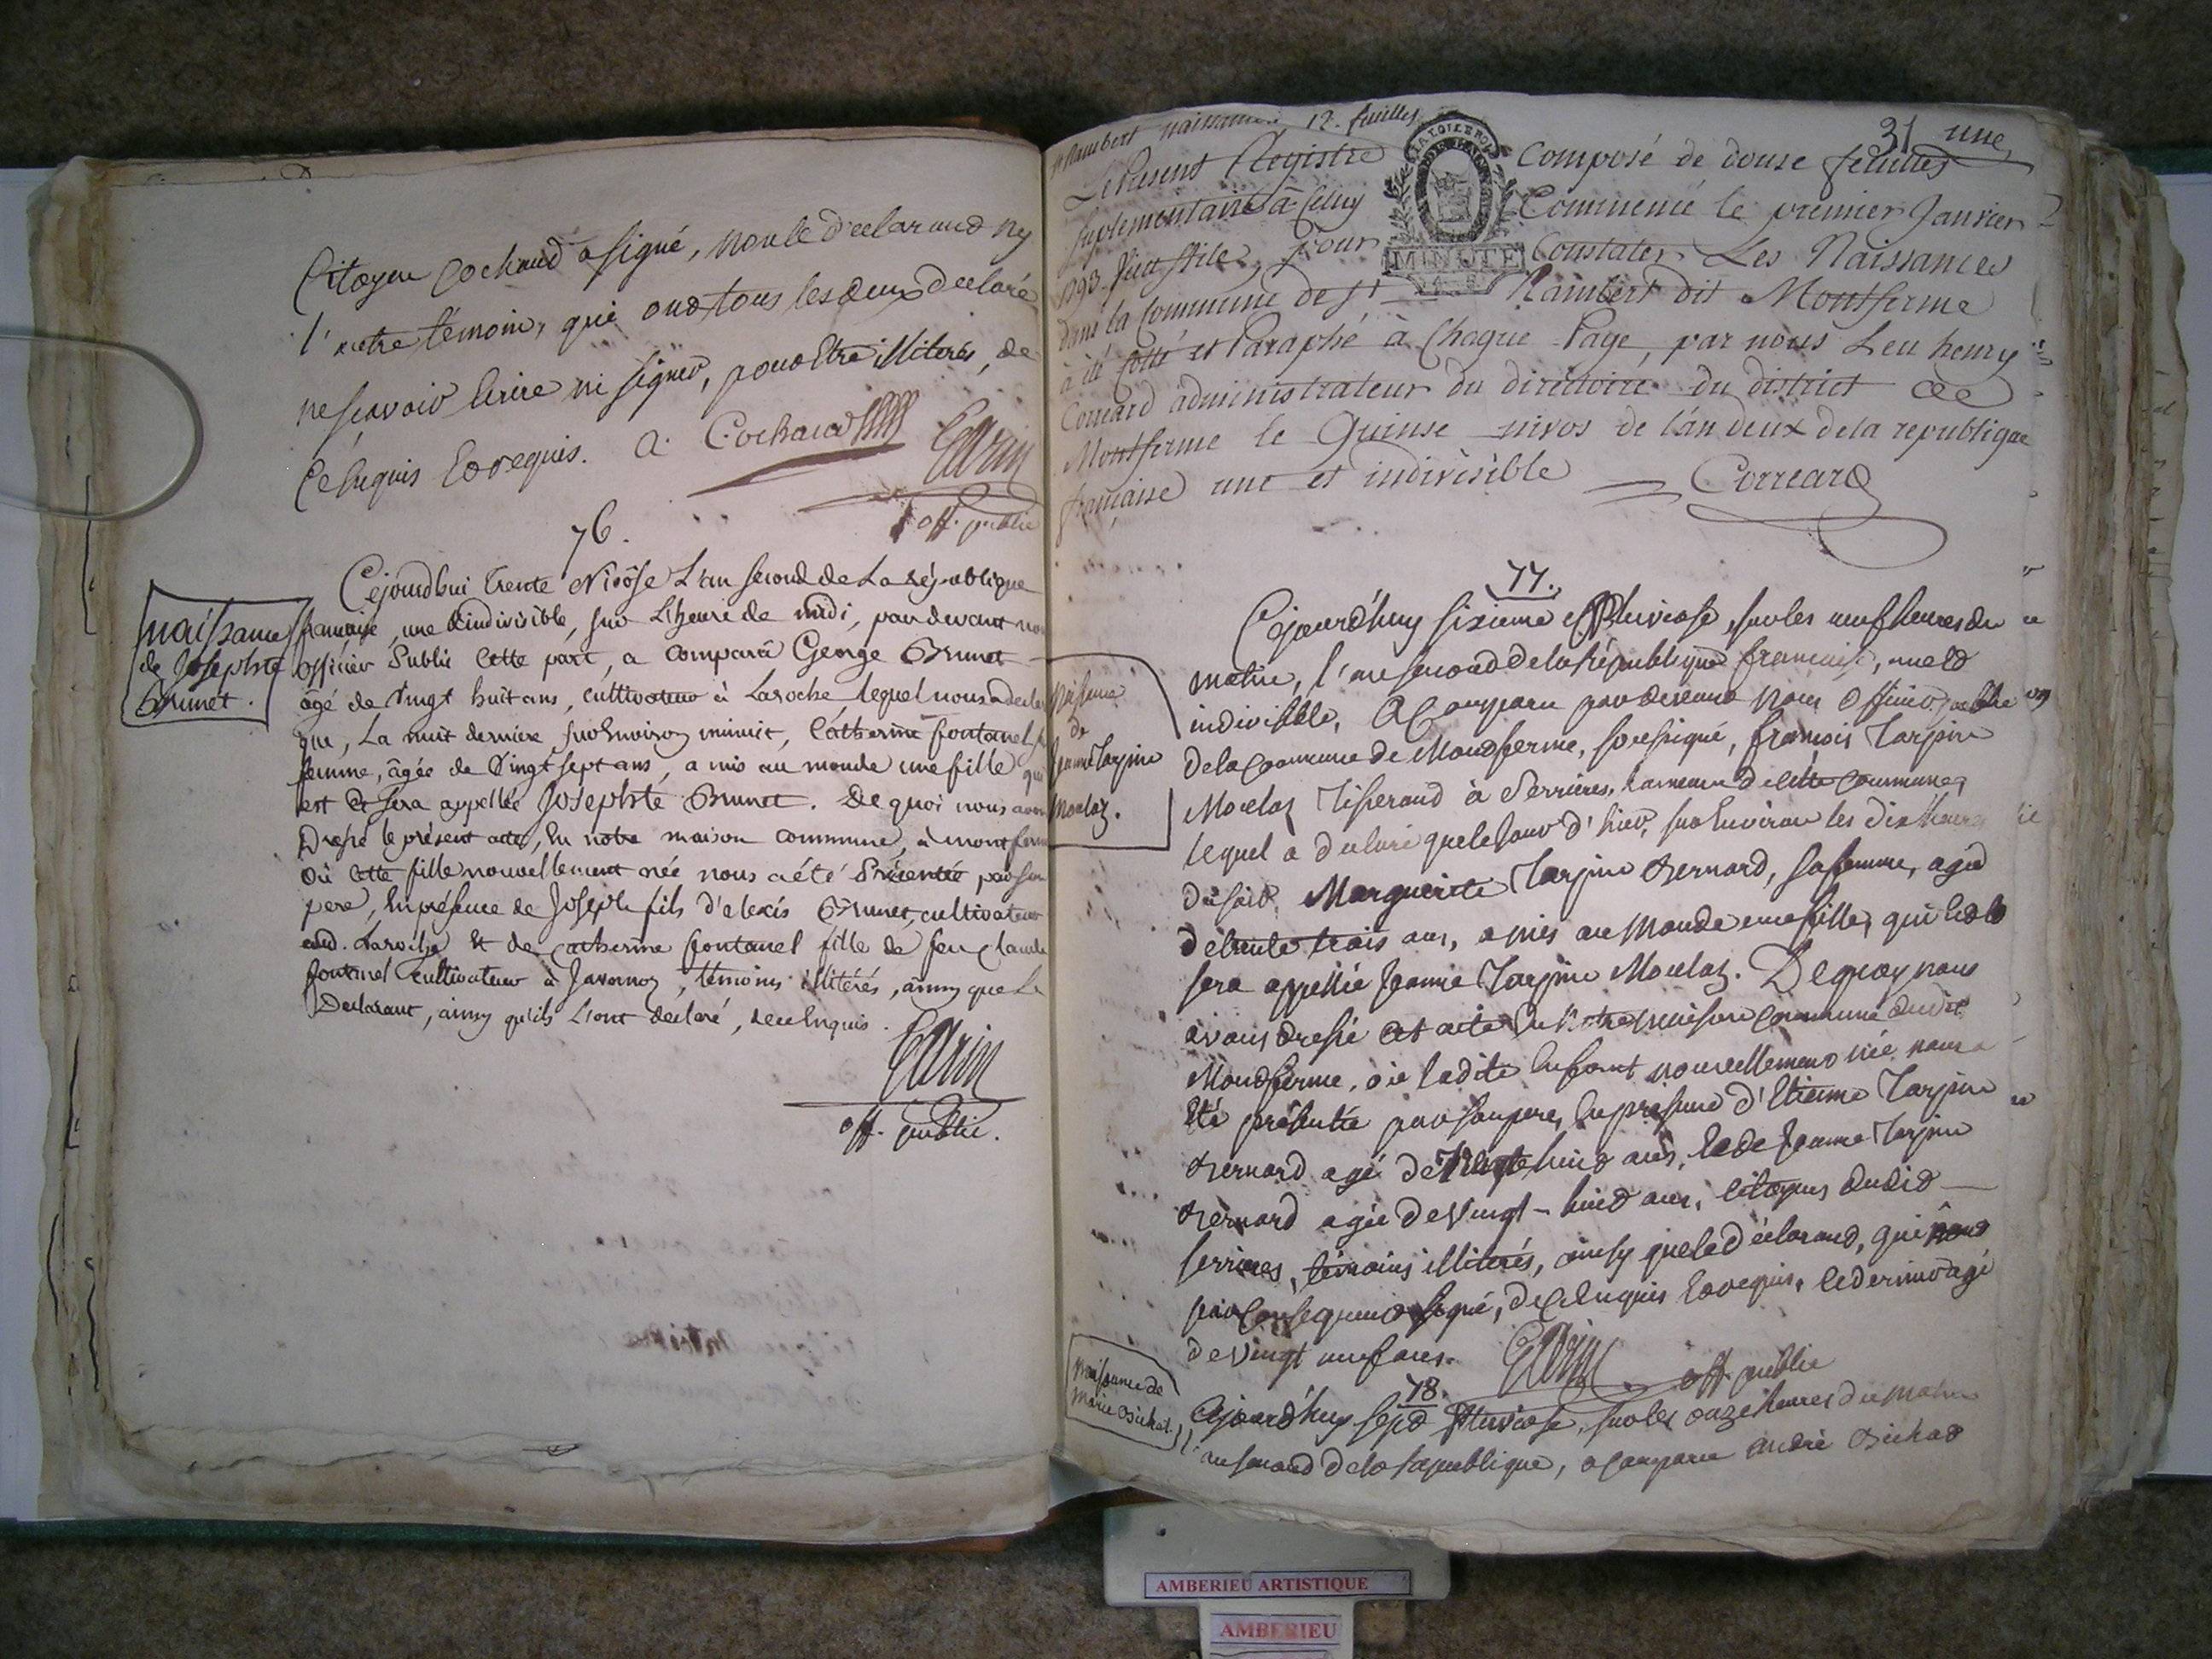 Citoyen Cochaud a signé, non le déclarand ny
l'autre témoin, qui ond tous les deux declaré
ne sçavoir Ecrire ni signer, pour Etre illiterés, de
Ce Enquis Et requis. A. Cochaud
Garin
off. public
76.
naissance
de Josephte
Brunet.
Cejourdhui trente Nivôse L'an second de La république
francaise, une & indivisible, sur L'heure de midi, pardevant nou
officier Public Cette part, a comparû George Brunet
âgé de vingt huit ans, cultivateur à Laroche, lequel nous a decla
que, La nuit derniere, sur Environ minuit, Catherine fontanel
femme, âgée de vingt sept ans, a mis au monde une fille qui
est Et sera appellée Josephte Brunet. De quoi nous avon
Dressé le présent acte, En notre maison commune, à montferm
où Cette fille nouvellement née nous a été Présentée par son
pere, En présence de Joseph fils d'alexis Brunet, cultivateur
aud. Laroche Et de Catherine fontanel fille de feu Claude
fontanel cultivateur à Javornoz, témoins illitérés, ainsy que Le
Declarant, ainsy qu'ils L'ont declaré, de ce Enquis.
Garin
off. public.
St Rambert naissances 12. feuilles
31 une
Le Present Registre Composé de douse feuilles
suplementaire à Celuy Commencé le premier Janvier
1793. vieu stile, pour Constater Les Naissances
dans la Commune de St Rambert dit Montferme
à été Cotté et Paraphé à Chaque Page, par nous Leu henry
Correard administrateur du directoire du district de
Montferme le Quinse nivos de l'an deux de la republique
française une et indivisible Correard
MINUTE
77.
Naissance
de
Jeanne Tarpin
Moulaz.
Cejourd'huy sixieme Pluviose, sur les neuf heures du
matin, l'an second de la République francaise, une &
indivisible, a Comparu par devand Nous Officier public
de la Commune de Mondferme, soussigné, francois Tarpin
Moulaz Tisserand à Serrieres, hameau de cette commune,
lequel a declaré que le Jour d'hier, sur Environ les dix heures
du soir, Marguerite Tarpin Bernard, sa femme, agée
de trente trois ans, a mis au Monde une fille, qui Est &
sera appellée Jeanne Tarpin Moulaz. De quoy nous
avons dressé cet acte En Notre maison Commune dudit
Mondferme, où ladite Enfant nouvellement née nous a
Eté présentée par son pere, En presence d'Etienne Tarpin
Bernard agé de huit ans, & de Jeanne Tarpin
Bernard agée de Vingt-huit ans, Citoyens dudid
Serrieres, témoins illiterés, ainsy que le déclarand, qui
par Consequent signé, de Ce Enquis Et requis, le dernier agé
de vingt neuf ans. Garin off. public
78.
Naissance de
Marie Bichat.
Cejourd'huy sept Pluviose, sur les onze heures du matin
l'an second de la Republique, a Comparu André Bichat
AMBERIEU ARTISTIQUE
AMBERIEU